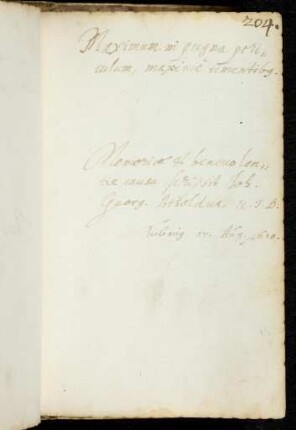 204.
Maximum in pugna peri-
culum, maximè timentibq.
Memoriæ et benevolen-
tiæ causa scripsit Joh.
Georg. Besoldus. U. J. D.
Tubing. Aug.